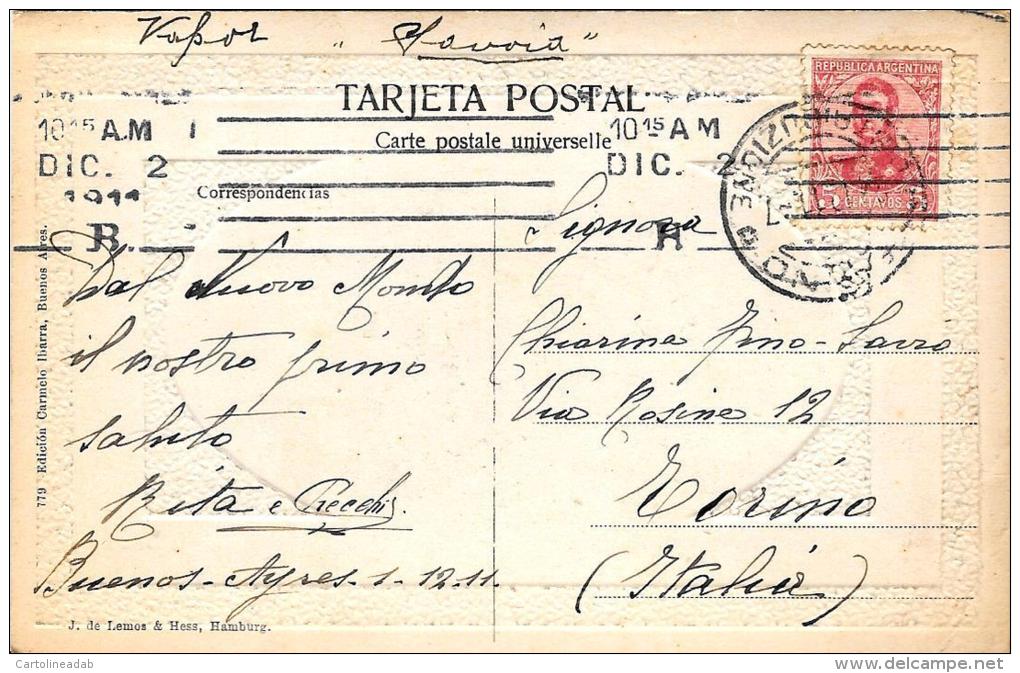 Vapor "Savoia"
REPUBLICA ARGENTINA
5 CENTAVOS 5
TARJETA POSTAL
Carte postale universelle
10 15 A.M
DIC. 2
1911
10 15 A M
DIC. 2
Correspondencias
B.
Dal Nuovo Mondo
il nostro primo
saluto
Rita e Checchi
Buenos-Ayres-1-12-11
Signora
Chiarina Fino-Savio
Via Rosine 12
Torino
(Italia)
779 Edición Carmelo Ibarra, Buenos Aires.
J. de Lemos & Hess, Hamburg.
Cartolineadab
delcampe.net